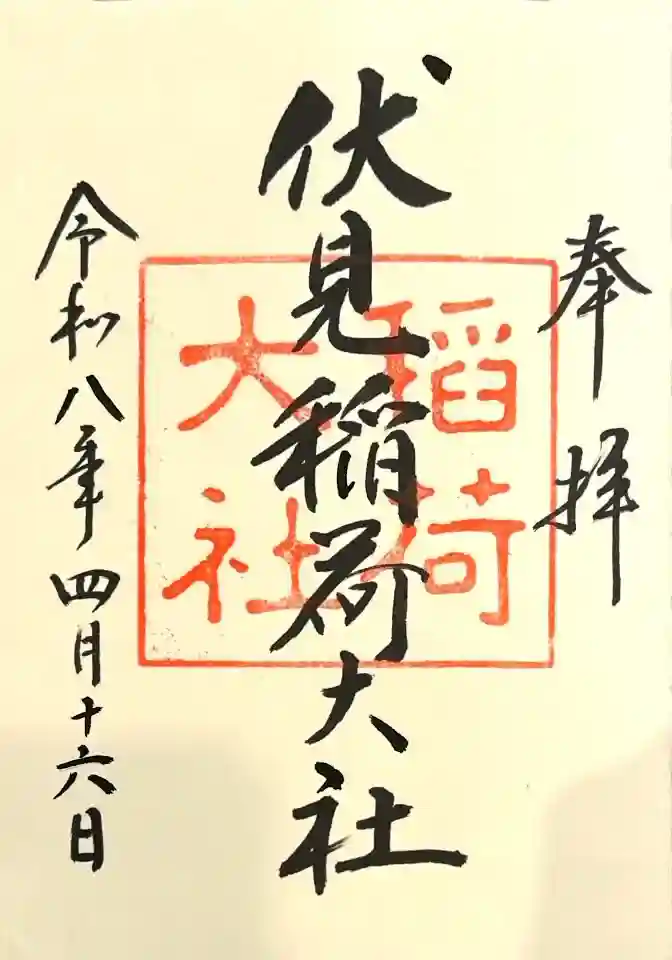 奉拝
伏見稲荷大社
稲荷
大社
令和八年四月十六日